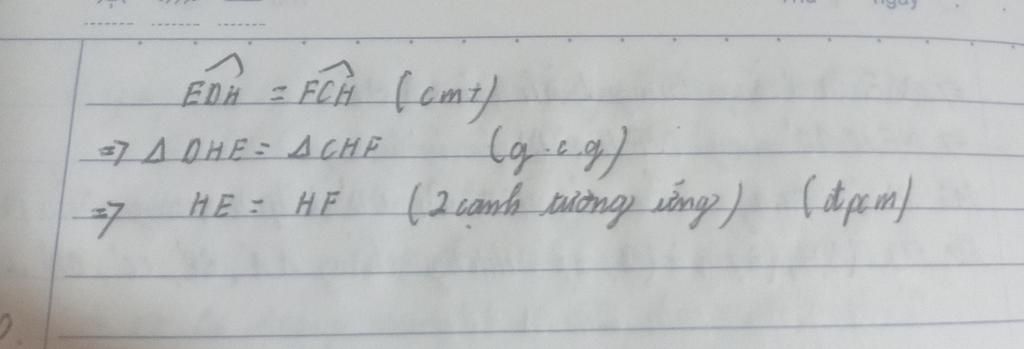 Thứ ngày
$\widehat{EDH} = \widehat{FCH}$ (cmt)
=> Δ DHE = Δ CHF (g.c.g)
=> HE = HF (2 cạnh tương ứng) (đpcm)